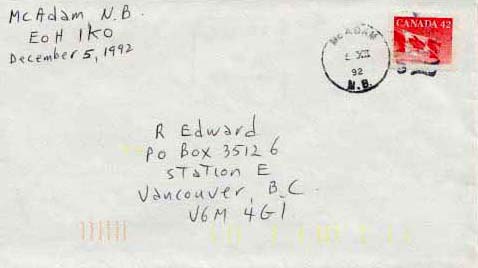 McAdam N.B.
E0H 1K0
December 5, 1992
McADAM
XII
92
N.B.
CANADA 42
R Edward
PO Box 35126
Station E
Vancouver, B.C.
V6M 4G1